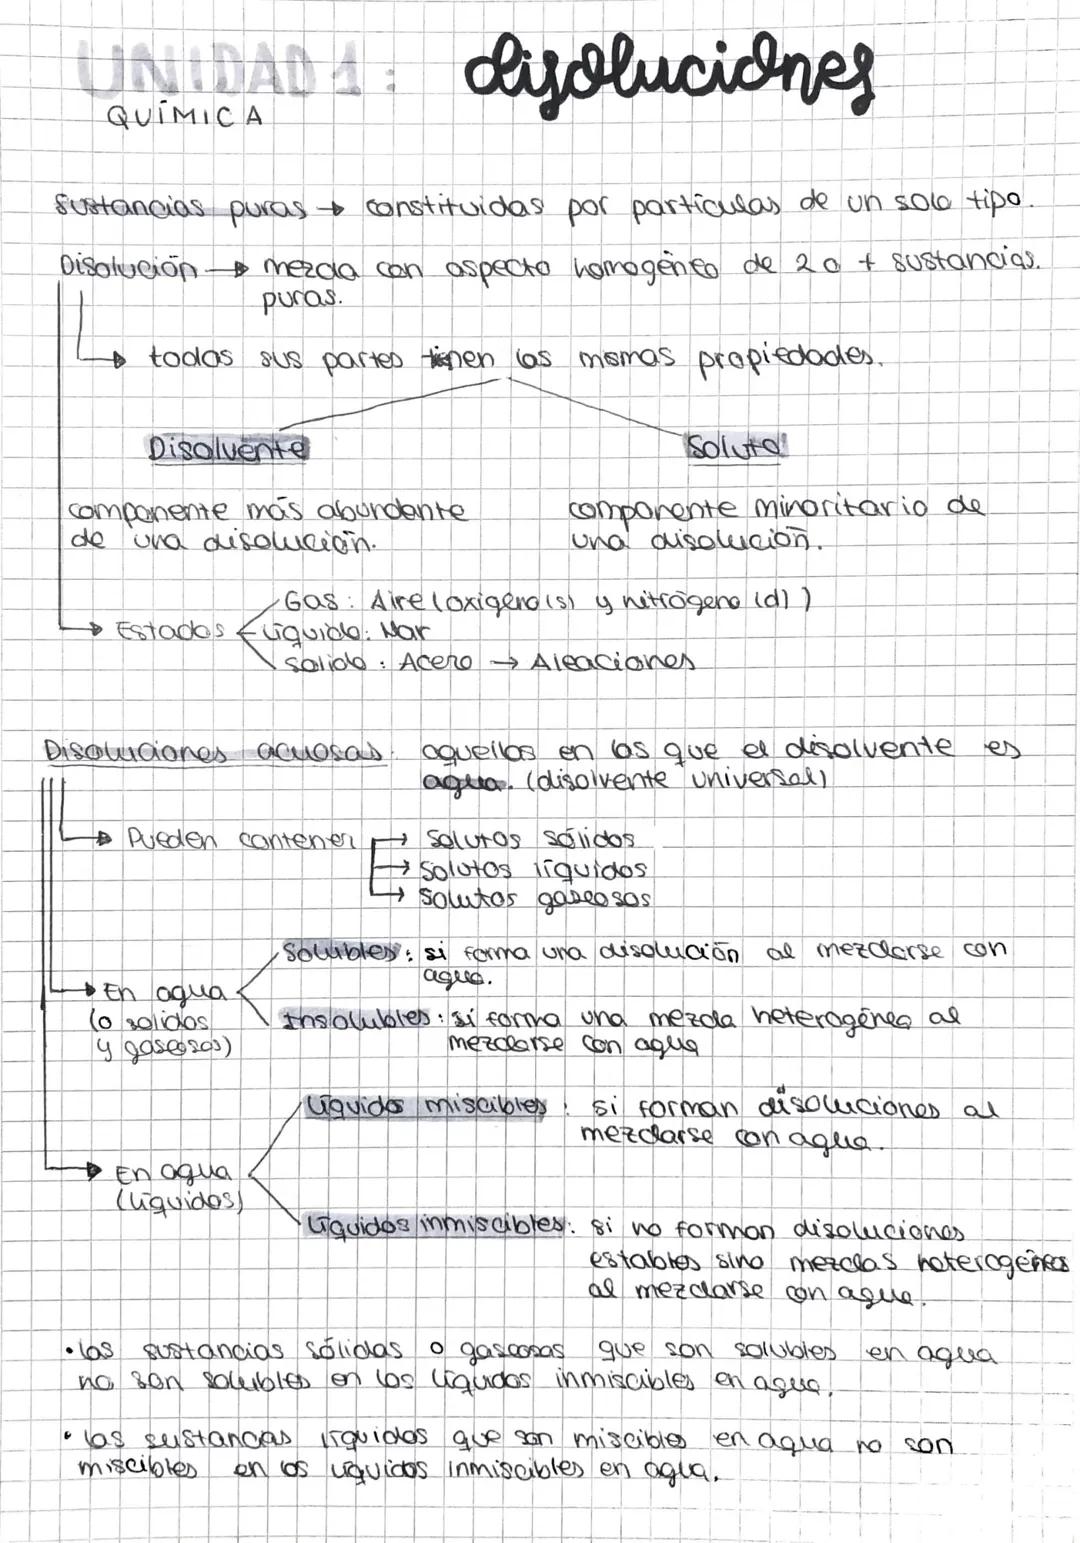 UNIDAD 1: disoluciones
QUÍMICA
Sustancias puras → constituidas por partículas de un solo tipo.
Disolución → mezcla con aspecto homogéneo de 2 o + sustancias.
puras.
→ todas sus partes tienen las mismas propiedades.
Disolvente
Soluto
componente más abundante
de una disolución.
componente minoritario de
una disolución.
Gas: Aire (oxígeno (s) y nitrógeno (d))
→ Estados
líquido: Mar
sólido: Acero → Aleaciones
Disoluciones acuosas: aquellas en las que el disolvente es
agua. (disolvente universal)
→ Pueden contener → Solutos sólidos
→ Solutos líquidos
→ Solutos gaseosos
Solubles: si forma una disolución al mezclarse con
agua.
→ En agua
(o solidos
y gaseosos)
Insolubles: si forma una mezcla heterogénea al
mezclarse con agua
líquidos miscibles: si forman disoluciones al
mezclarse con agua.
→ En agua
(líquidos)
líquidos inmiscibles: si no forman disoluciones
estables sino mezclas heterogéneas
al mezclarse con agua.
• las sustancias sólidas o gaseosas que son solubles en agua
no son solubles en los líquidos inmiscibles en agua.
• las sustancias líquidas que son miscibles en agua no son
miscibles en os líquidos inmiscibles en agua.